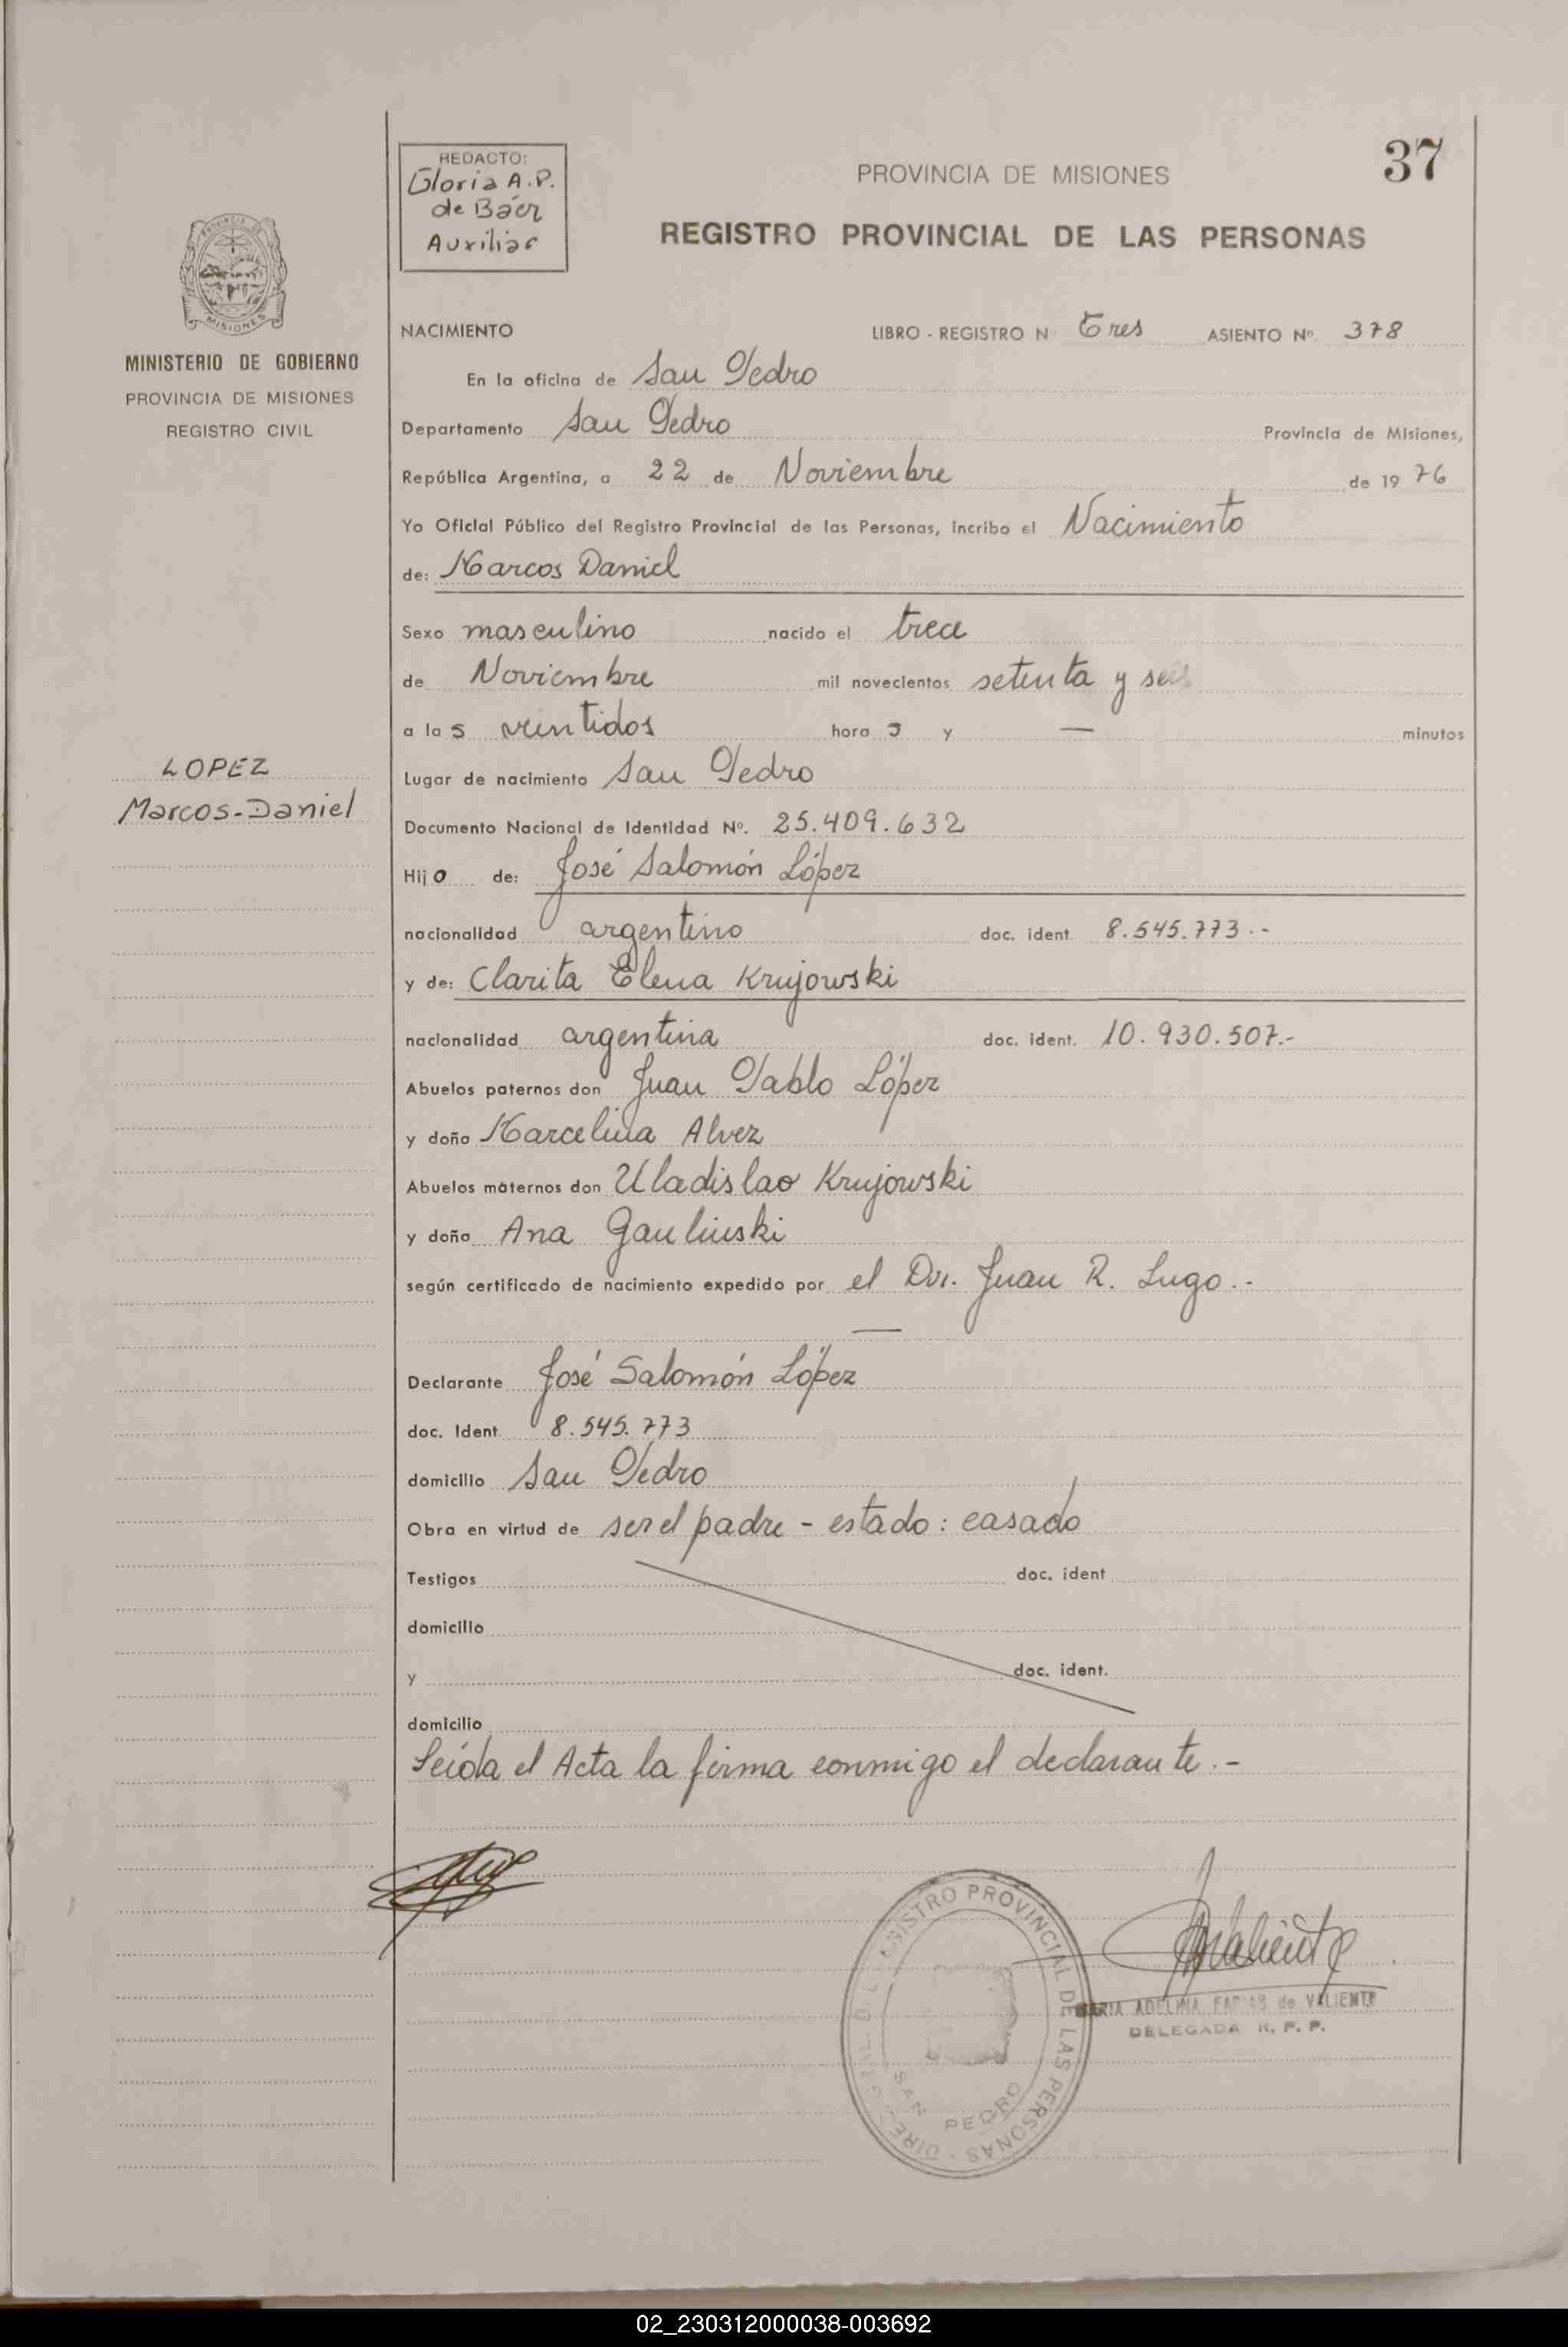 37
REDACTO:
Gloria A.P.
de Báer
Auxiliar
PROVINCIA DE MISIONES
REGISTRO PROVINCIAL DE LAS PERSONAS
MISIONES
MINISTERIO DE GOBIERNO
PROVINCIA DE MISIONES
REGISTRO CIVIL
LOPEZ
Marcos-Daniel
NACIMIENTO LIBRO - REGISTRO Nº Tres ASIENTO Nº 378
En la oficina de San Pedro
Departamento San Pedro Provincia de Misiones,
República Argentina, a 22 de Noviembre de 1976
Yo Oficial Público del Registro Provincial de las Personas, incribo el Nacimiento
de: Marcos Daniel
Sexo masculino nacido el trece
de Noviembre mil novecientos setenta y seis
a las veintidos horas y — minutos
Lugar de nacimiento San Pedro
Documento Nacional de Identidad Nº. 25.409.632
Hijo de: José Salomón López
nacionalidad argentino doc. ident. 8.545.773.-
y de: Clarita Elena Krujowski
nacionalidad argentina doc. ident. 10.930.507.-
Abuelos paternos don Juan Pablo López
y doña Marcelina Alvez
Abuelos maternos don Uladislao Krujowski
y doña Ana Gaulinski
según certificado de nacimiento expedido por el Dr. Juan R. Lugo.-
—
Declarante José Salomón López
doc. Ident. 8.545.773
domicilio San Pedro
Obra en virtud de ser el padre - estado: casado
Testigos doc. ident
domicilio
y doc. ident.
domicilio
Leída el Acta la firma conmigo el declarante.-
REGISTRO PROVINCIAL DE LAS PERSONAS
SAN PEDRO
MARIA ADELINA FARIAS de VALIENTE
DELEGADA R. P. P.
02_230312000038-003692